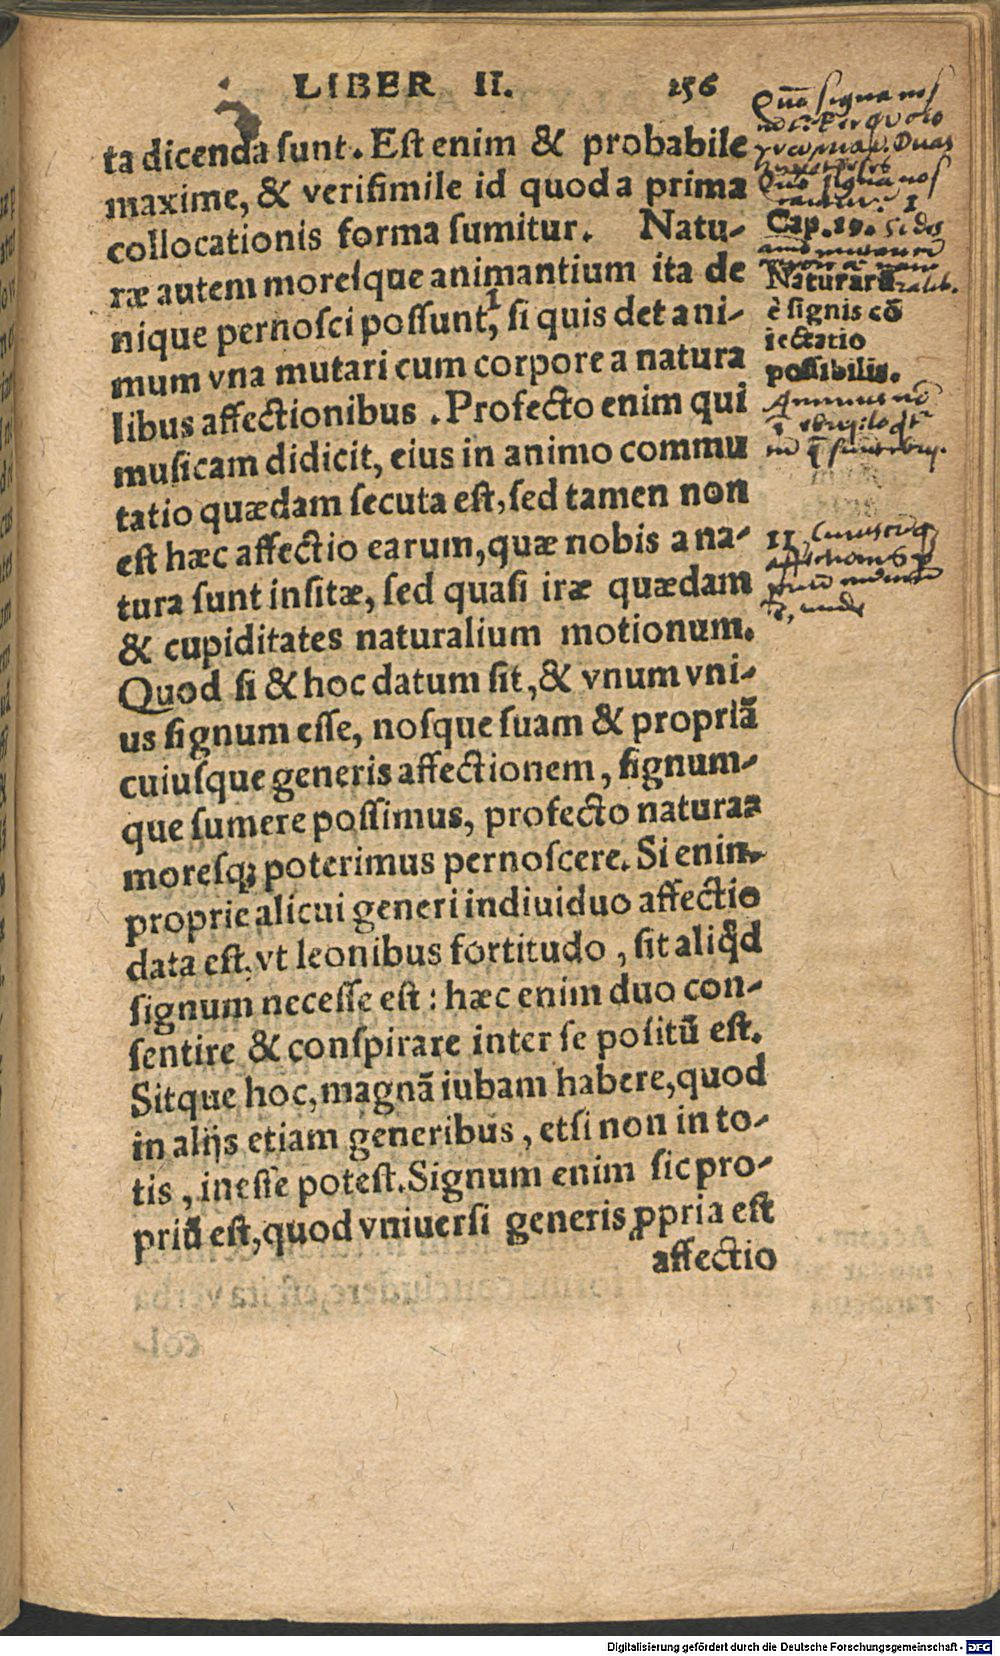 LIBER II. 156
ta dicenda sunt. Est enim & probabile
maxime, & verisimile id quod a prima
collocationis forma sumitur. Natu-
ræ autem moresque animantium ita de
nique pernosci possunt, si quis det ani-
mum vna mutari cum corpore a natura
libus affectionibus. Profecto enim qui
musicam didicit, eius in animo commu
tatio quædam secuta est, sed tamen non
est hæc affectio earum, quæ nobis a na-
tura sunt insitæ, sed quasi iræ quædam
& cupiditates naturalium motionum.
Quod si & hoc datum sit, & vnum vni-
us signum esse, nosque suam & propriã
cuiusque generis affectionem, signum-
que sumere possimus, profecto naturas
moresq; poterimus pernoscere. Si enim
proprie alicui generi indiuiduo affectio
data est, vt leonibus fortitudo, sit aliqđ
signum necesse est: hæc enim duo con-
sentire & conspirare inter se positũ est.
Sitque hoc, magnã iubam habere, quod
in alijs etiam generibus, etsi non in to-
tis, inesse potest. Signum enim sic pro-
priũ est, quod vniuersi generis ꝓpria est
affectio
signa nos
Duas
signa nos
1
Cap. 29. si des
Naturarũ
è signis cõ
iectatio
possibilis.
II
Digitalisierung gefördert durch die Deutsche Forschungsgemeinschaft - DFG